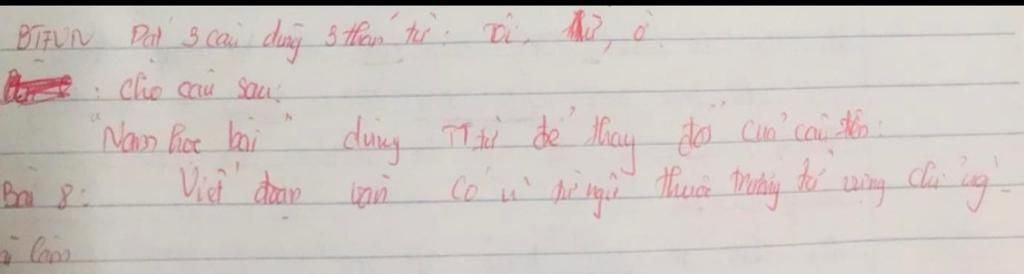 BTVN Đặt 3 câu dùng 3 thán từ: Ôi, ừ, ơ.
: Cho câu sau:
"Nam học bài" dùng TT từ để thay đổi câu trên:
Bài 8: Viết đoạn văn có từ ngữ thuộc trường từ vựng chỉ
làm